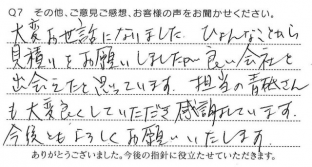 Q7 その他、ご意見ご感想、お客様の声をお聞かせください。
大変お世話になりました。ひょんなことから
見積りをお願いしましたが良い会社と
出会えたと思っています。担当の青松さん
も大変良くしていただき感謝しています。
今後ともよろしくお願いいたします。
ありがとうございました。今後の指針に役立たせていただきます。